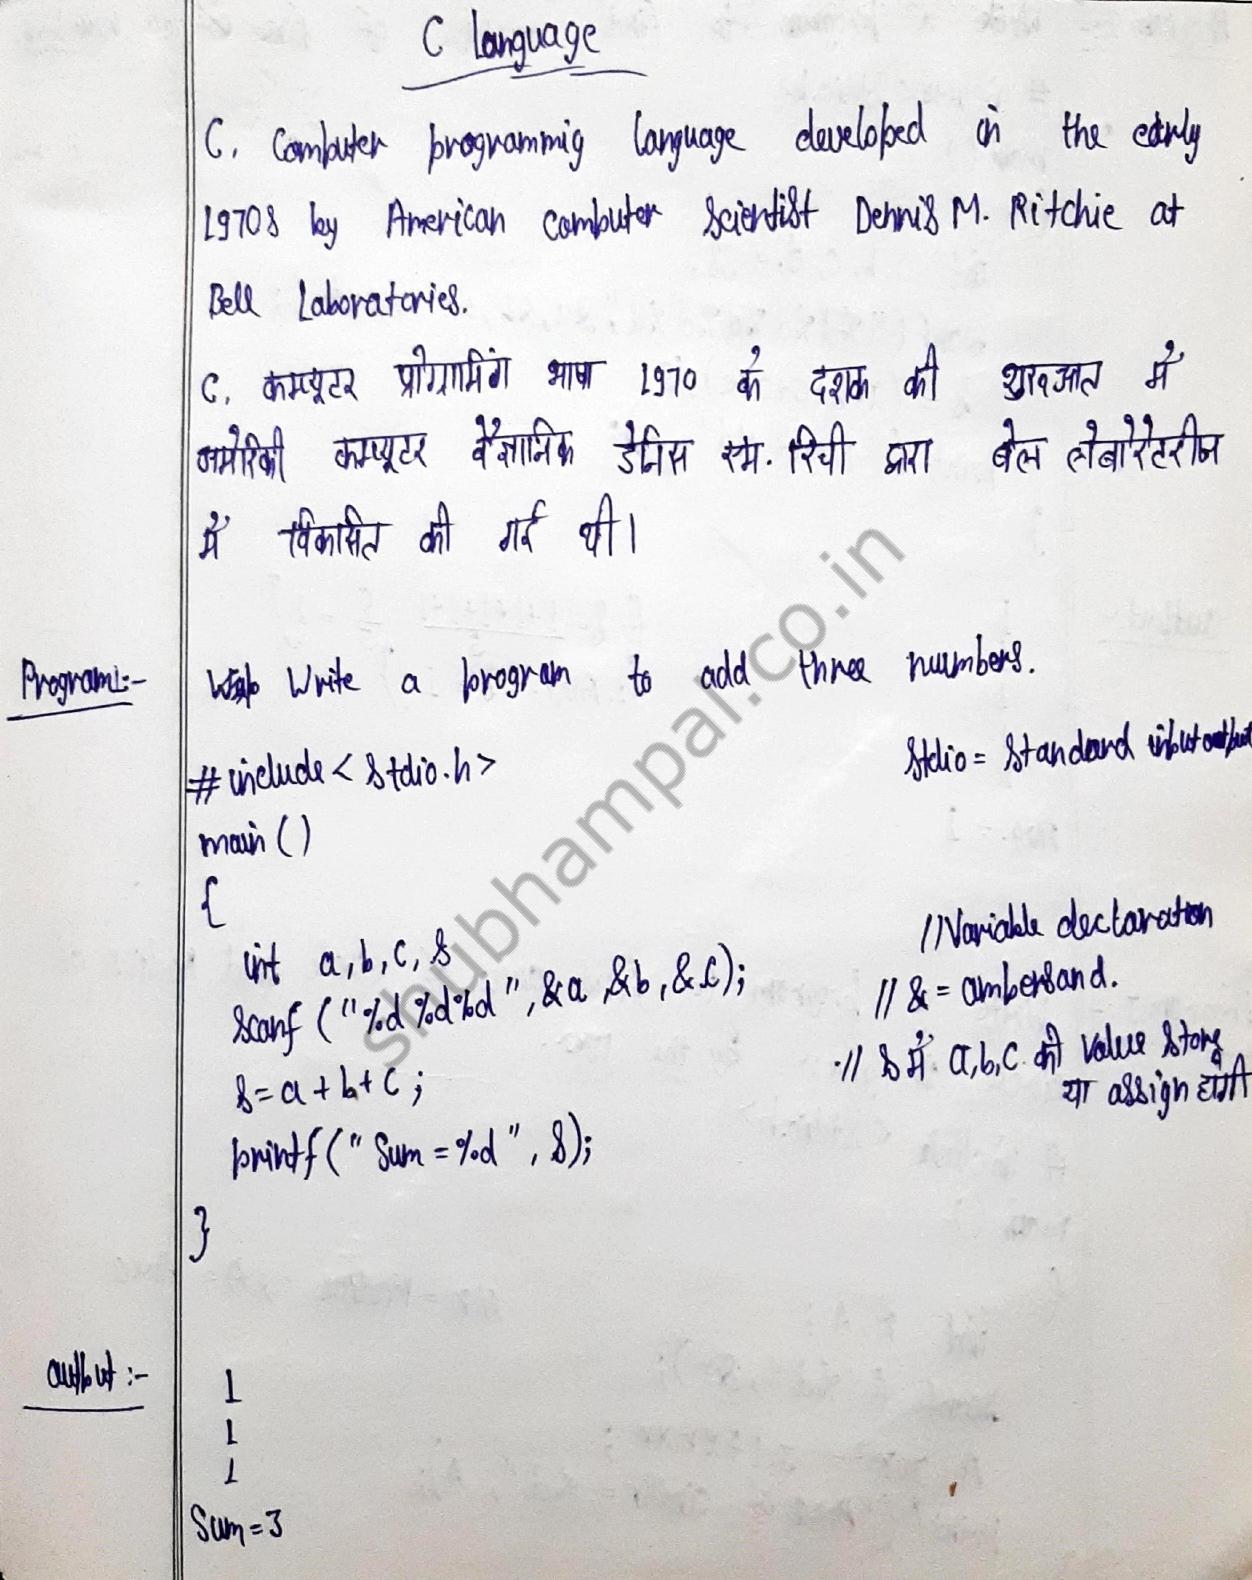 C Language
C, Computer programmig language developed in the early
1970s by American computer scientist Dennis M. Ritchie at
Bell Laboratories.
C, कम्प्यूटर प्रोग्रामिंग भाषा 1970 के दशक की शुरुआत में
अमेरिकी कम्प्यूटर वैज्ञानिक डेनिस एम. रिची द्वारा बेल लेबोरेटरीज
में विकसित की गई थी।
Program1:- Write a program to add three numbers.
#include<stdio.h> Stdio = Standard input output
main()
{
int a,b,c,s //Variable declaration
scanf ("%d%d%d",&a,&b,&c); // & = ambersand.
s=a+b+c; // s में a,b,c की value store
या assign होगी
printf("Sum=%d", s);
}
output:- 1
1
1
Sum=3
shubhampal.co.in